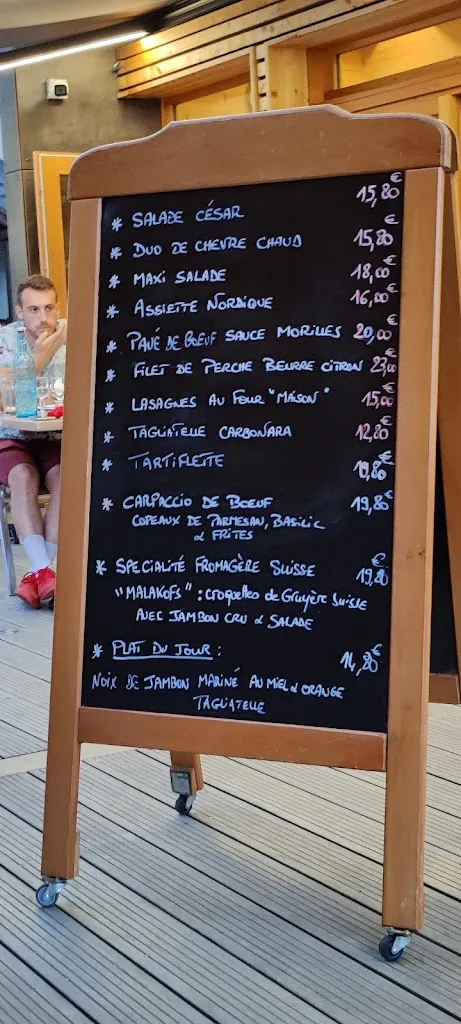 * SALADE CÉSAR 15,80€
* DUO DE CHEVRE CHAUD 15,80€
* MAXI SALADE 18,00€
* ASSIETTE NORDIQUE 16,00€
* PAVÉ DE BOEUF SAUCE MORILLES 20,00€
* FILET DE PERCHE BEURRE CITRON 23,00€
* LASAGNES AU FOUR "MAISON" 15,00€
* TAGLIATELLE CARBONARA 12,80€
* TARTIFLETTE 19,80€
* CARPACCIO DE BOEUF 19,80€
COPEAUX DE PARMESAN, BASILIC
& FRITES
* SPECIALITÉ FROMAGÈRE SUISSE 19,80€
"MALAKOFS" : CROQUETTES DE GRUYÈRE SUISSE
AVEC JAMBON CRU & SALADE
* PLAT DU JOUR : 14,80€
NOIX DE JAMBON MARINÉ AU MIEL & ORANGE
TAGLIATELLE